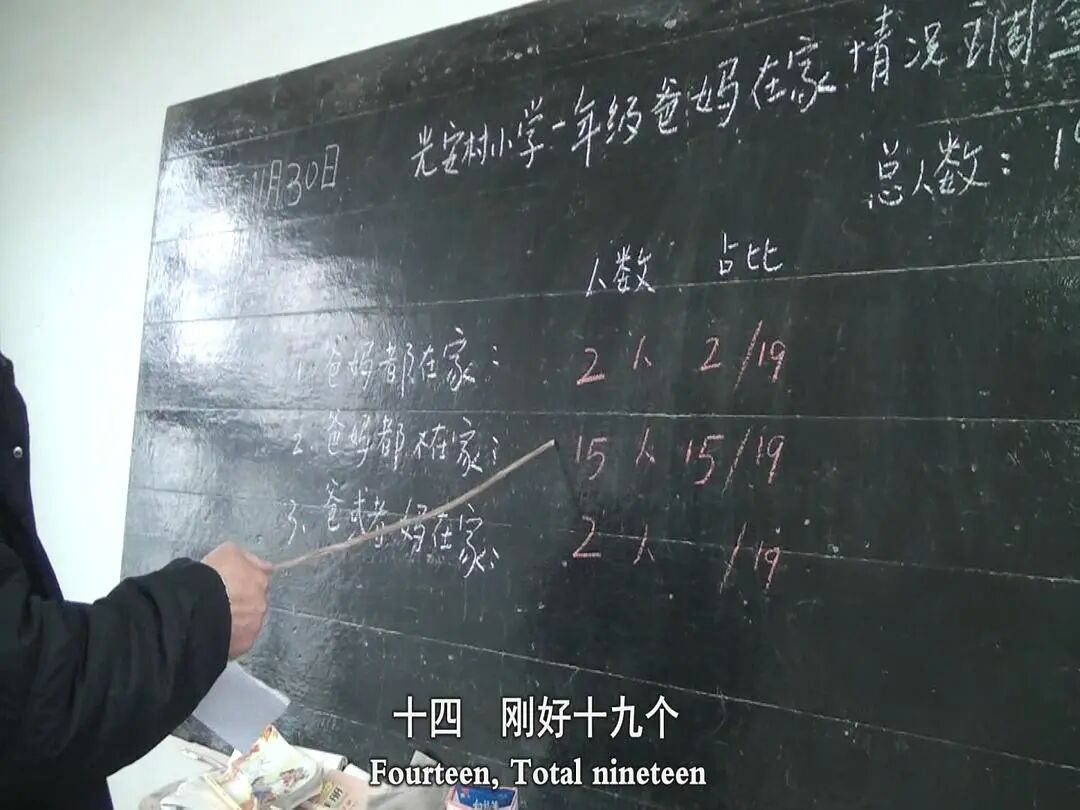 光安村小学一年级爸妈在家情况调查
11月30日
总人数：19
人数 占比
1. 爸妈都在家： 2人 2/19
2. 爸妈都不在家： 15人 15/19
3. 爸或者妈在家： 2人 /19
十四 刚好十九个
Fourteen, Total nineteen